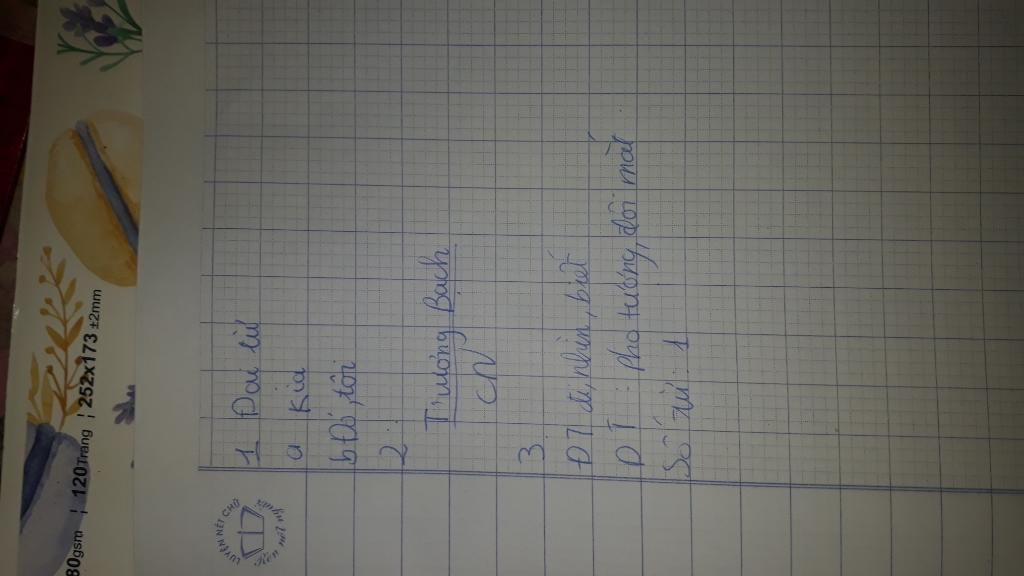 80gsm | 120Trang | 252x173 ±2mm
LUYỆN NÉT CHỮ
1 Đai từ
a Kia
b Đó, tôi
2
Trương Bạch
CN
3
ĐT đi, nhìn, biết
DT : pho tượng, đôi mắt
Số từ : 1